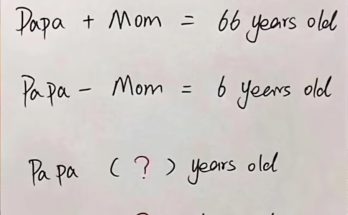 Papa + Mom = 66 years old
Papa - Mom = 6 years old
Papa ( ? ) years old